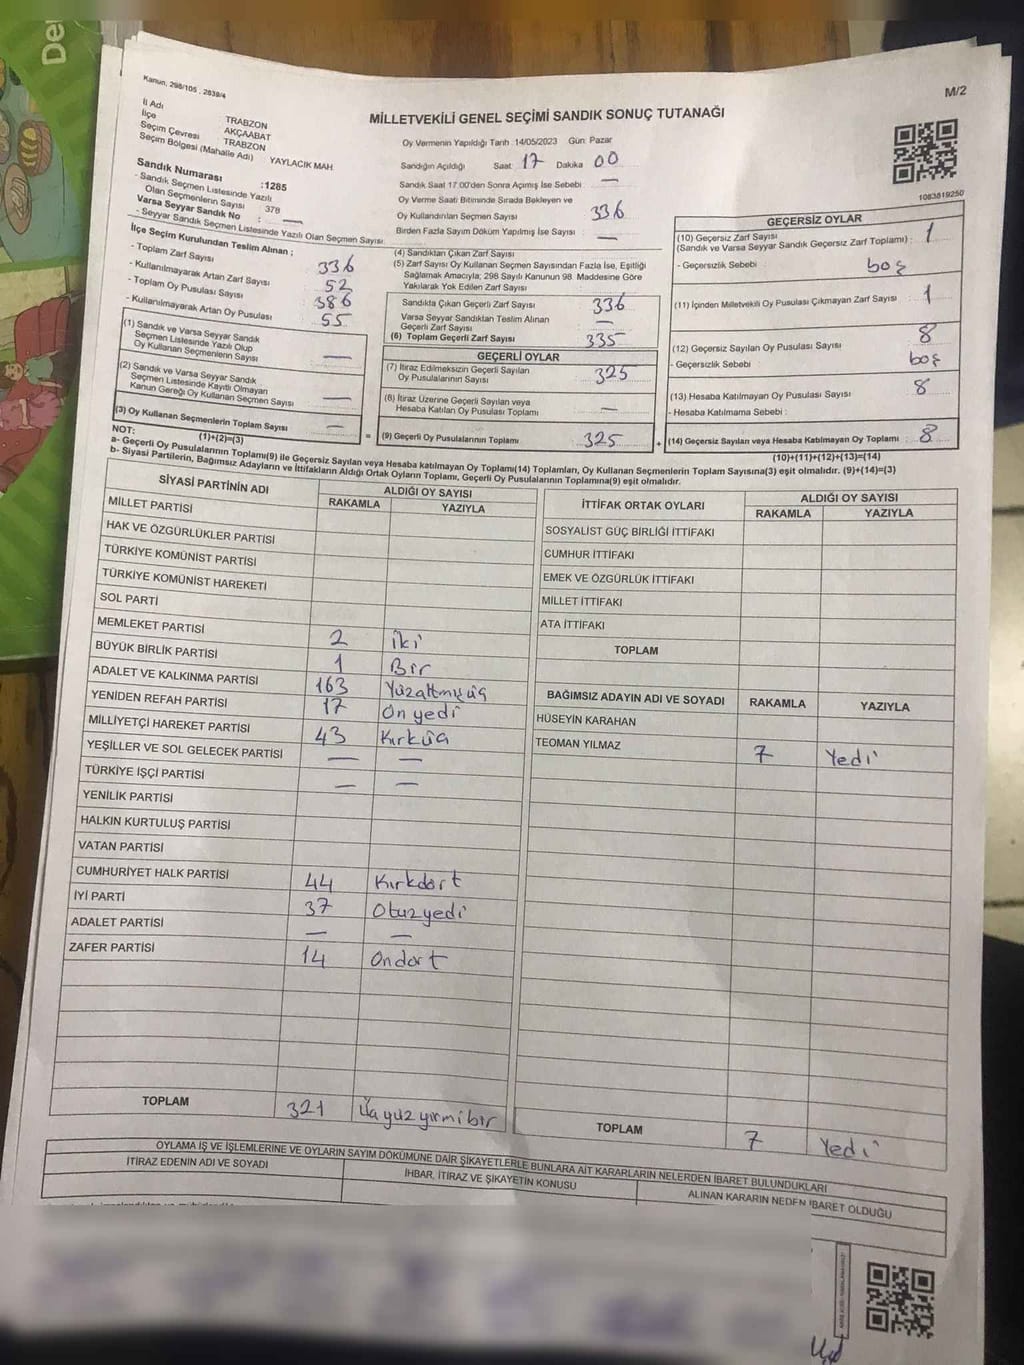 De
Kanun, 298/105 , 2839/4
M/2
İl Adı TRABZON
İlçe AKÇAABAT
Seçim Çevresi TRABZON
Seçim Bölgesi (Mahalle Adı) YAYLACIK MAH
Sandık Numarası :1285
- Sandık Seçmen Listesinde Yazılı
Olan Seçmenlerin Sayısı 378
Varsa Seyyar Sandık No : —
- Seyyar Sandık Seçmen Listesinde Yazılı Olan Seçmen Sayısı
MİLLETVEKİLİ GENEL SEÇİMİ SANDIK SONUÇ TUTANAĞI
Oy Vermenin Yapıldığı Tarih :14/05/2023 Gün: Pazar
Sandığın Açıldığı Saat: 17 Dakika 00
Sandık Saat 17.00'den Sonra Açımış İse Sebebi —
Oy Verme Saati Bitiminde Sırada Bekleyen ve
Oy Kullandırılan Seçmen Sayısı 336
Birden Fazla Sayım Döküm Yapılmış İse Sayısı —
1083819250
İlçe Seçim Kurulundan Teslim Alınan ;
- Toplam Zarf Sayısı 336
- Kullanılmayarak Artan Zarf Sayısı 52
- Toplam Oy Pusulası Sayısı 386
- Kullanılmayarak Artan Oy Pusulası 55
(1) Sandık ve Varsa Seyyar Sandık
Seçmen Listesinde Yazılı Olup
Oy Kullanan Seçmenlerin Sayısı —
(2) Sandık ve Varsa Seyyar Sandık
Seçmen Listesinde Kayıtlı Olmayan
Kanun Gereği Oy Kullanan Seçmen Sayısı —
(3) Oy Kullanan Seçmenlerin Toplam Sayısı —
(1)+(2)=(3)
(4) Sandıktan Çıkan Zarf Sayısı
(5) Zarf Sayısı Oy Kullanan Seçmen Sayısından Fazla İse, Eşitliği
Sağlamak Amacıyla; 298 Sayılı Kanunun 98. Maddesine Göre
Yakılarak Yok Edilen Zarf Sayısı
Sandıkta Çıkan Geçerli Zarf Sayısı 336
Varsa Seyyar Sandıktan Teslim Alınan
Geçerli Zarf Sayısı —
(6) Toplam Geçerli Zarf Sayısı 335
GEÇERLİ OYLAR
(7) İtiraz Edilmeksizin Geçerli Sayılan
Oy Pusulalarının Sayısı 325
(8) İtiraz Üzerine Geçerli Sayılan veya
Hesaba Katılan Oy Pusulası Toplamı —
= (9) Geçerli Oy Pusulalarının Toplamı 325 +
GEÇERSİZ OYLAR
(10) Geçersiz Zarf Sayısı
(Sandık ve Varsa Seyyar Sandık Geçersiz Zarf Toplamı) : 1
- Geçersizlik Sebebi : boş
(11) İçinden Milletvekili Oy Pusulası Çıkmayan Zarf Sayısı 1
(12) Geçersiz Sayılan Oy Pusulası Sayısı 8
- Geçersizlik Sebebi boş
(13) Hesaba Katılmayan Oy Pusulası Sayısı 8
- Hesaba Katılmama Sebebi :
(14) Geçersiz Sayılan veya Hesaba Katılmayan Oy Toplamı 8
(10)+(11)+(12)+(13)=(14)
NOT:
a- Geçerli Oy Pusulalarının Toplamı(9) ile Geçersiz Sayılan veya Hesaba katılmayan Oy Toplamı(14) Toplamları, Oy Kullanan Seçmenlerin Toplam Sayısına(3) eşit olmalıdır. (9)+(14)=(3)
b- Siyasi Partilerin, Bağımsız Adayların ve İttifakların Aldığı Ortak Oyların Toplamı, Geçerli Oy Pusulalarının Toplamına(9) eşit olmalıdır.
SİYASİ PARTİNİN ADI ALDIĞI OY SAYISI
RAKAMLA YAZIYLA
MİLLET PARTİSİ
HAK VE ÖZGÜRLÜKLER PARTİSİ
TÜRKİYE KOMÜNİST PARTİSİ
TÜRKİYE KOMÜNİST HAREKETİ
SOL PARTİ
MEMLEKET PARTİSİ 2 iki
BÜYÜK BİRLİK PARTİSİ 1 Bir
ADALET VE KALKINMA PARTİSİ 163 Yüzaltmışüç
YENİDEN REFAH PARTİSİ 17 On yedi
MİLLİYETÇİ HAREKET PARTİSİ 43 Kırküç
YEŞİLLER VE SOL GELECEK PARTİSİ — —
TÜRKİYE İŞÇİ PARTİSİ — —
YENİLİK PARTİSİ
HALKIN KURTULUŞ PARTİSİ
VATAN PARTİSİ
CUMHURİYET HALK PARTİSİ 44 Kırkdört
İYİ PARTİ 37 Otuzyedi
ADALET PARTİSİ — —
ZAFER PARTİSİ 14 Ondört
TOPLAM 321 Üçyüzyirmibir
İTTİFAK ORTAK OYLARI ALDIĞI OY SAYISI
RAKAMLA YAZIYLA
SOSYALİST GÜÇ BİRLİĞİ İTTİFAKI
CUMHUR İTTİFAKI
EMEK VE ÖZGÜRLÜK İTTİFAKI
MİLLET İTTİFAKI
ATA İTTİFAKI
TOPLAM
BAĞIMSIZ ADAYIN ADI VE SOYADI RAKAMLA YAZIYLA
HÜSEYİN KARAHAN
TEOMAN YILMAZ 7 Yedi
TOPLAM 7 Yedi
OYLAMA İŞ VE İŞLEMLERİNE VE OYLARIN SAYIM DÖKÜMÜNE DAİR ŞİKAYETLERLE BUNLARA AİT KARARLARIN NELERDEN İBARET BULUNDUKLARI
İTİRAZ EDENİN ADI VE SOYADI İHBAR, İTİRAZ VE ŞİKAYETİN KONUSU ALINAN KARARIN NEDEN İBARET OLDUĞU